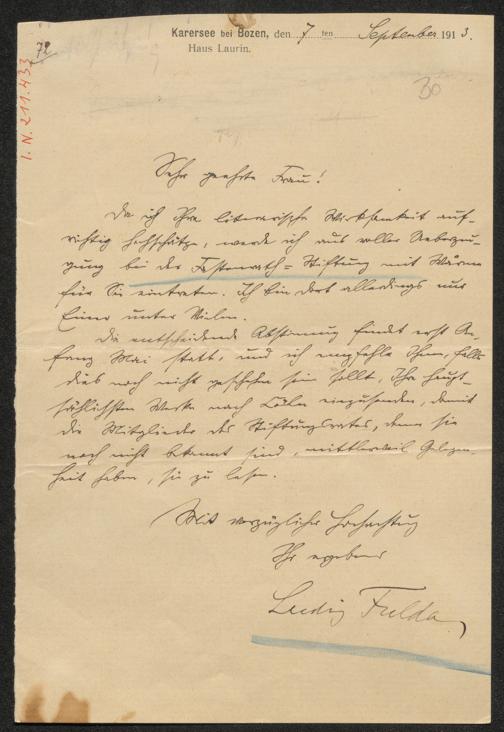 Karersee bei Bozen, den 7ten September 1913.
Haus Laurin.
72
I. N. 211.433
30
Sehr geehrte Frau!
Da ich Ihre literarische Wirksamkeit auf-
richtig hochschätze, werde ich aus voller Ueberzeu-
gung bei der Fastenrath-Stiftung mit Wärme
für Sie eintreten. Ich bin dort allerdings nur
Einer unter Vielen.
Die entscheidende Abstimmung findet erst An-
fang Mai statt, und ich empfehle Ihnen, falls
dies noch nicht geschehen sein sollte, Ihre haupt-
sächlichsten Werke nach Cöln einzusenden, damit
die Mitglieder des Stiftungsrates, denen sie
noch nicht bekannt sind, mittlerweil Gelegen-
heit haben, sie zu lesen.
Mit vorzüglicher Hochachtung
Ihr ergebener
Ludwig Fulda